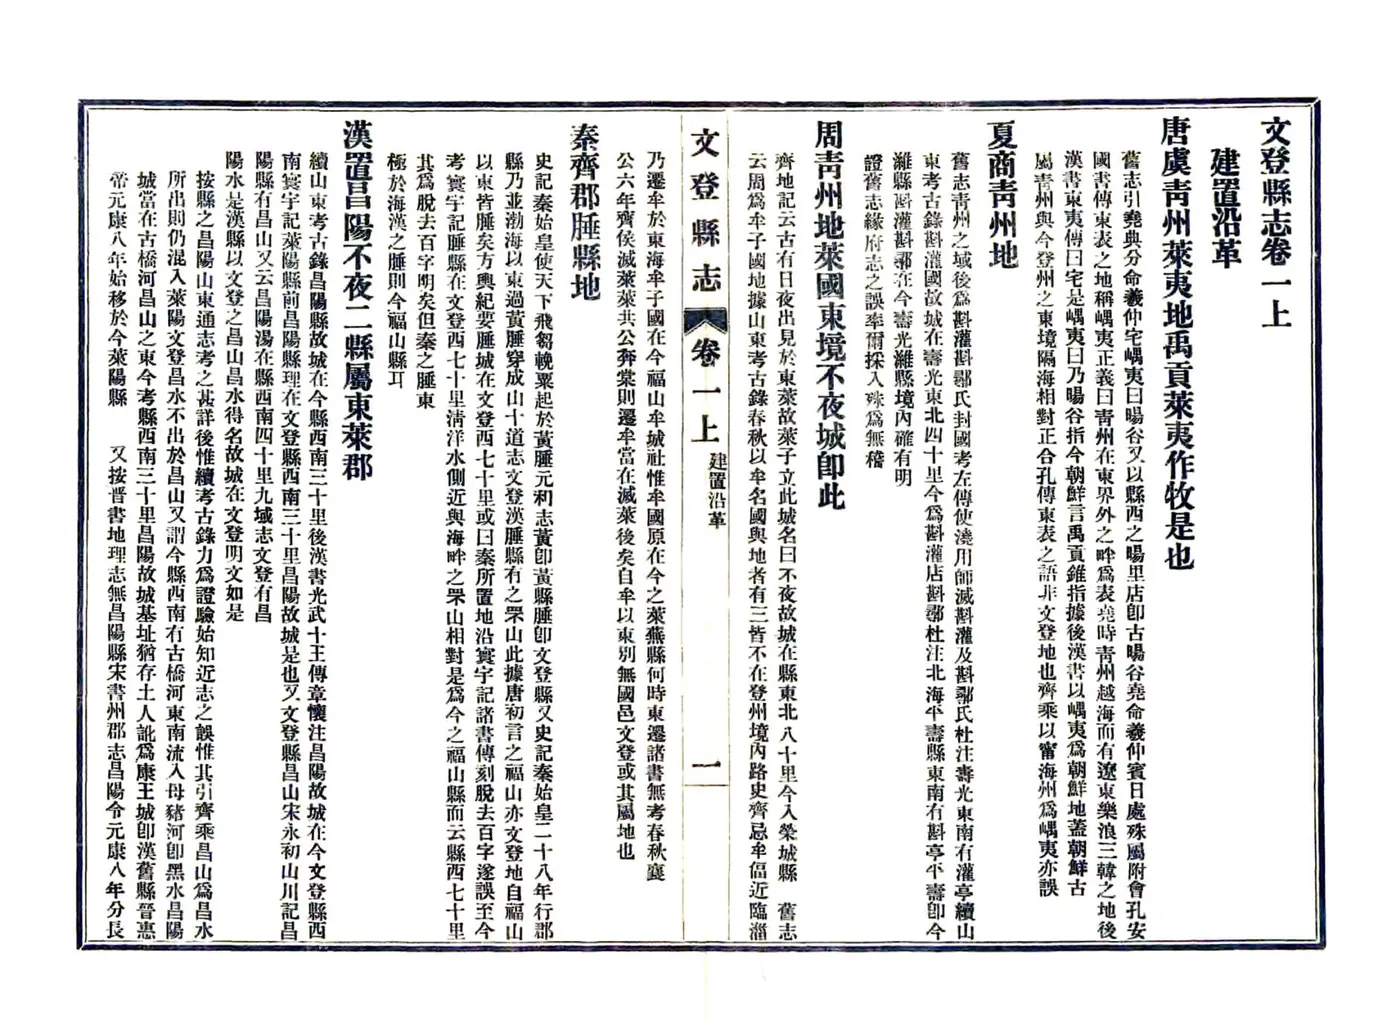 文登縣志卷一上
建置沿革
唐虞青州萊夷地禹貢萊夷作牧是也
舊志引堯典分命羲仲宅嵎夷曰暘谷又以縣西之暘里店卽古暘谷堯命羲仲賓日處殊屬附會孔安
國書傳東表之地稱嵎夷正義曰青州在東界外之畔爲表堯時青州越海而有遼東樂浪三韓之地後
漢書東夷傳曰宅是嵎夷曰乃暘谷指今朝鮮言禹貢錐指據後漢書以嵎夷爲朝鮮地蓋朝鮮古
屬青州與今登州之東境隔海相對正合孔傳東表之語非文登地也齊乘以甯海州爲嵎夷亦誤
夏商青州地
舊志青州之域後爲斟灌斟鄩氏封國考左傳使澆用師滅斟灌及斟鄩氏杜注壽光東南有灌亭續山
東考古錄斟灌國故城在壽光東北四十里今爲斟灌店斟鄩杜注北海平壽縣東南有斟亭平壽卽今
濰縣斟灌斟鄩在今壽光濰縣境內確有明
證舊志緣府志之誤率爾採入殊爲無稽
周青州地萊國東境不夜城卽此
齊地記云古有日夜出見於東萊故萊子立此城名曰不夜故城在縣東北八十里今入榮城縣 舊志
云周爲牟子國地據山東考古錄春秋以牟名國與地者有三皆不在登州境內路史齊忌牟偪近臨淄
文登縣志 卷一上 建置沿革 一
乃遷牟於東海牟子國在今福山牟城社惟牟國原在今之萊蕪縣何時東遷諸書無考春秋襄
公六年齊侯滅萊萊共公奔棠則遷牟當在滅萊後矣自牟以東別無國邑文登或其屬地也
秦齊郡腄縣地
史記秦始皇使天下飛芻輓粟起於黃腄元和志黃卽黃縣腄卽文登縣又史記秦始皇二十八年行郡
縣乃並渤海以東過黃腄穿成山十道志文登漢腄縣有之罘山此據唐初言之福山亦文登地自福山
以東皆腄矣方輿紀要腄城在文登西七十里或曰秦所置地沿寰宇記諸書傳刻脫去百字遂誤至今
考寰宇記腄縣在文登西七十里淸洋水側近與海畔之罘山相對是爲今之福山縣而云縣西七十里
其爲脫去百字明矣但秦之腄東
極於海漢之腄則今福山縣耳
漢置昌陽不夜二縣屬東萊郡
續山東考古錄昌陽縣故城在今縣西南三十里後漢書光武十王傳章懷注昌陽故城在今文登縣西
南寰宇記萊陽縣前昌陽縣理在文登縣西南三十里昌陽故城是也又文登縣昌山宋永初山川記昌
陽縣有昌山又云昌陽湯在縣西南四十里九域志文登有昌
陽水是漢縣以文登之昌山昌水得名故城在文登明文如是
按縣之昌陽山東通志考之甚詳後惟續考古錄力爲證驗始知近志之誤惟其引齊乘昌山爲昌水
所出則仍混入萊陽文登昌水不出於昌山又謂今縣西南有古橋河東南流入母豬河卽黑水昌陽
城當在古橋河昌山之東今考縣西南三十里昌陽故城基址猶存土人訛爲康王城卽漢舊縣晉惠
帝元康八年始移於今萊陽縣 又按晉書地理志無昌陽縣宋書州郡志昌陽令元康八年分長